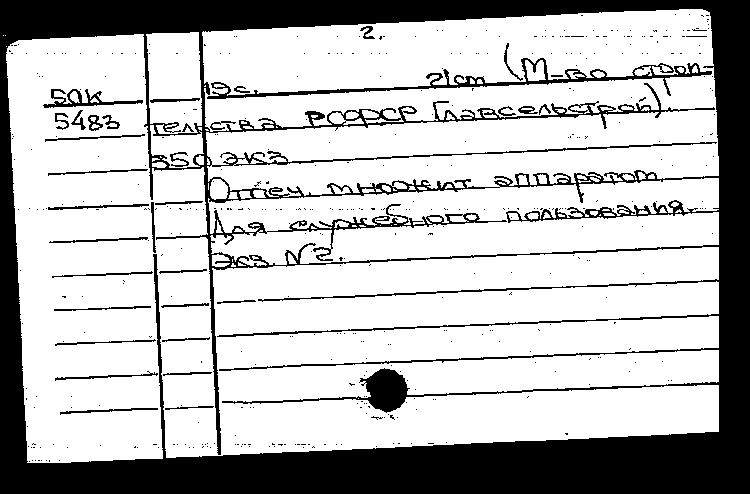 2.
50К 19с. 21см (М-во строи-
5483 тельства РСФСР Главсельстрой).
350 экз
Отпеч. множит. аппаратом.
Для служебного пользования.
Экз. N 2.